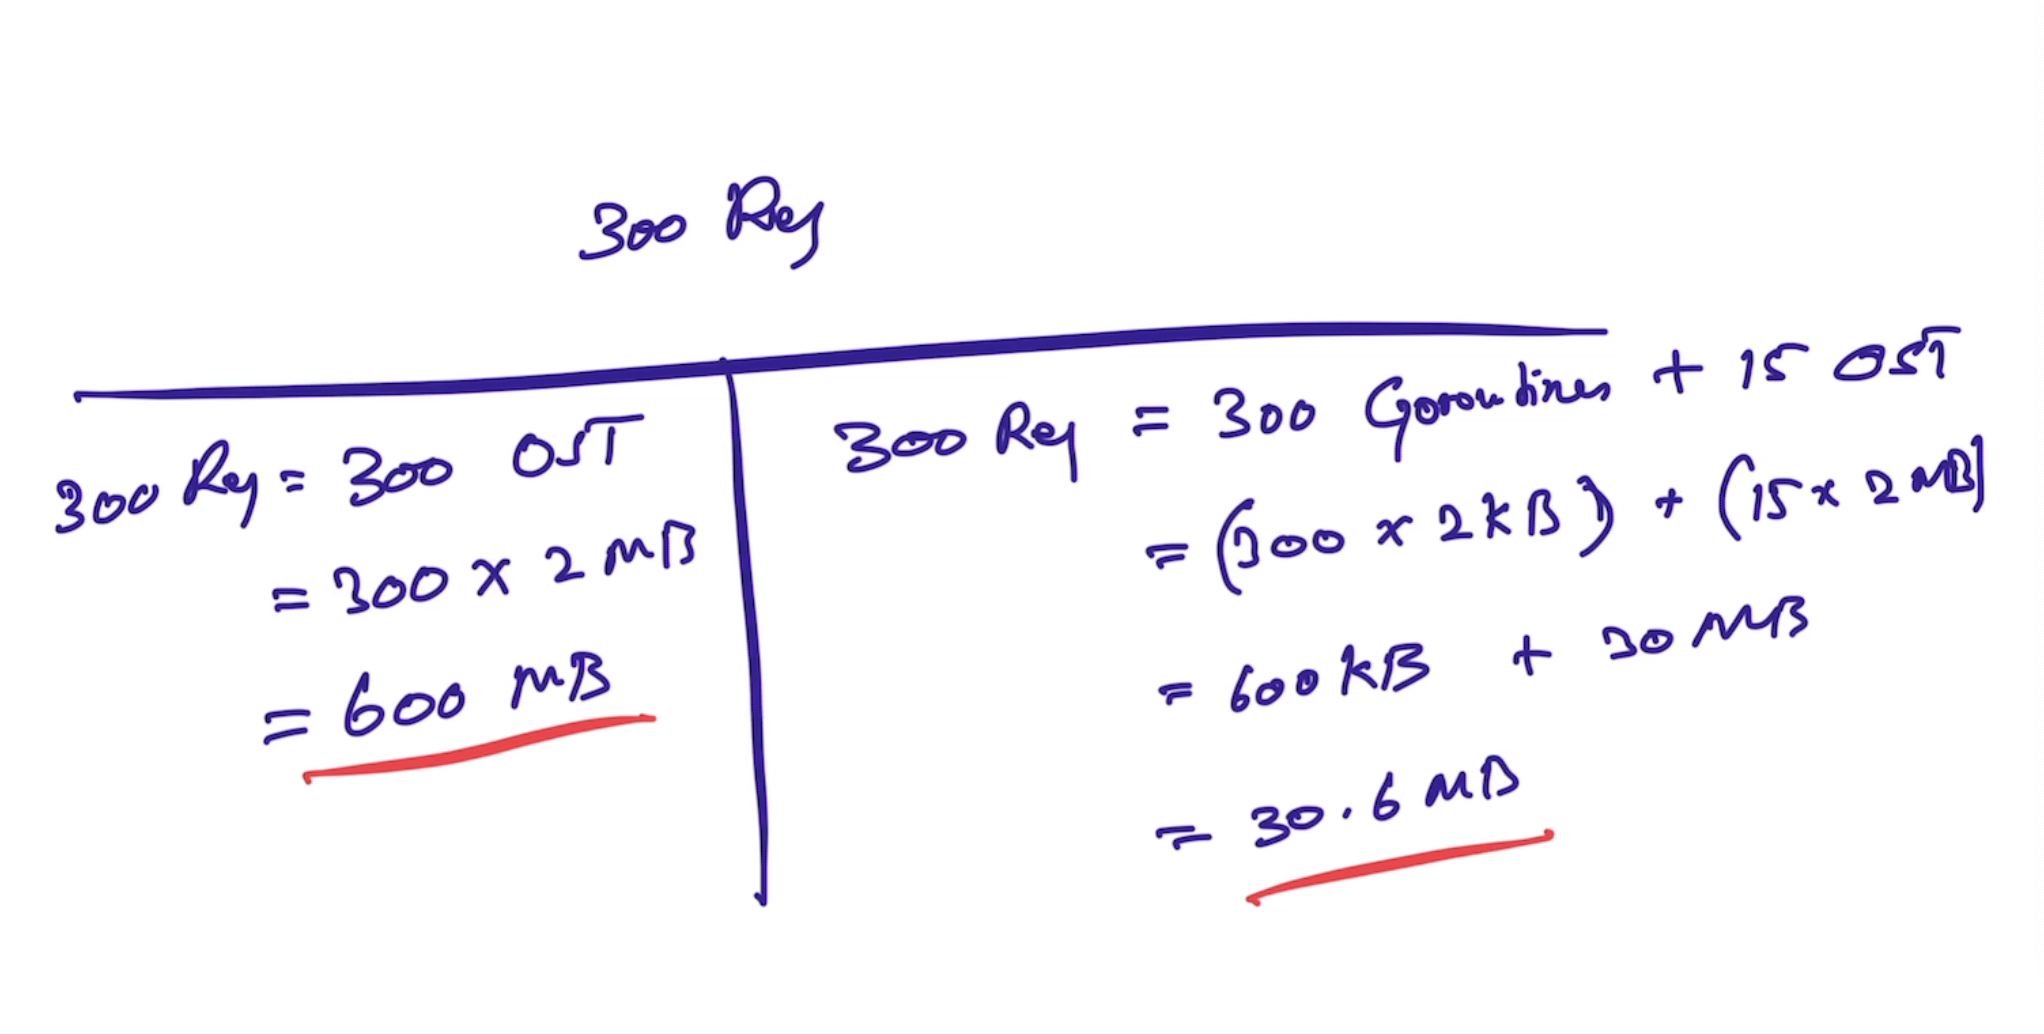 300 Req
300 Req = 300 OST
= 300 x 2 MB
= 600 MB
300 Req = 300 Goroutines + 15 OST
= (300 x 2KB) + (15 x 2 MB)
= 600 KB + 30 MB
= 30.6 MB